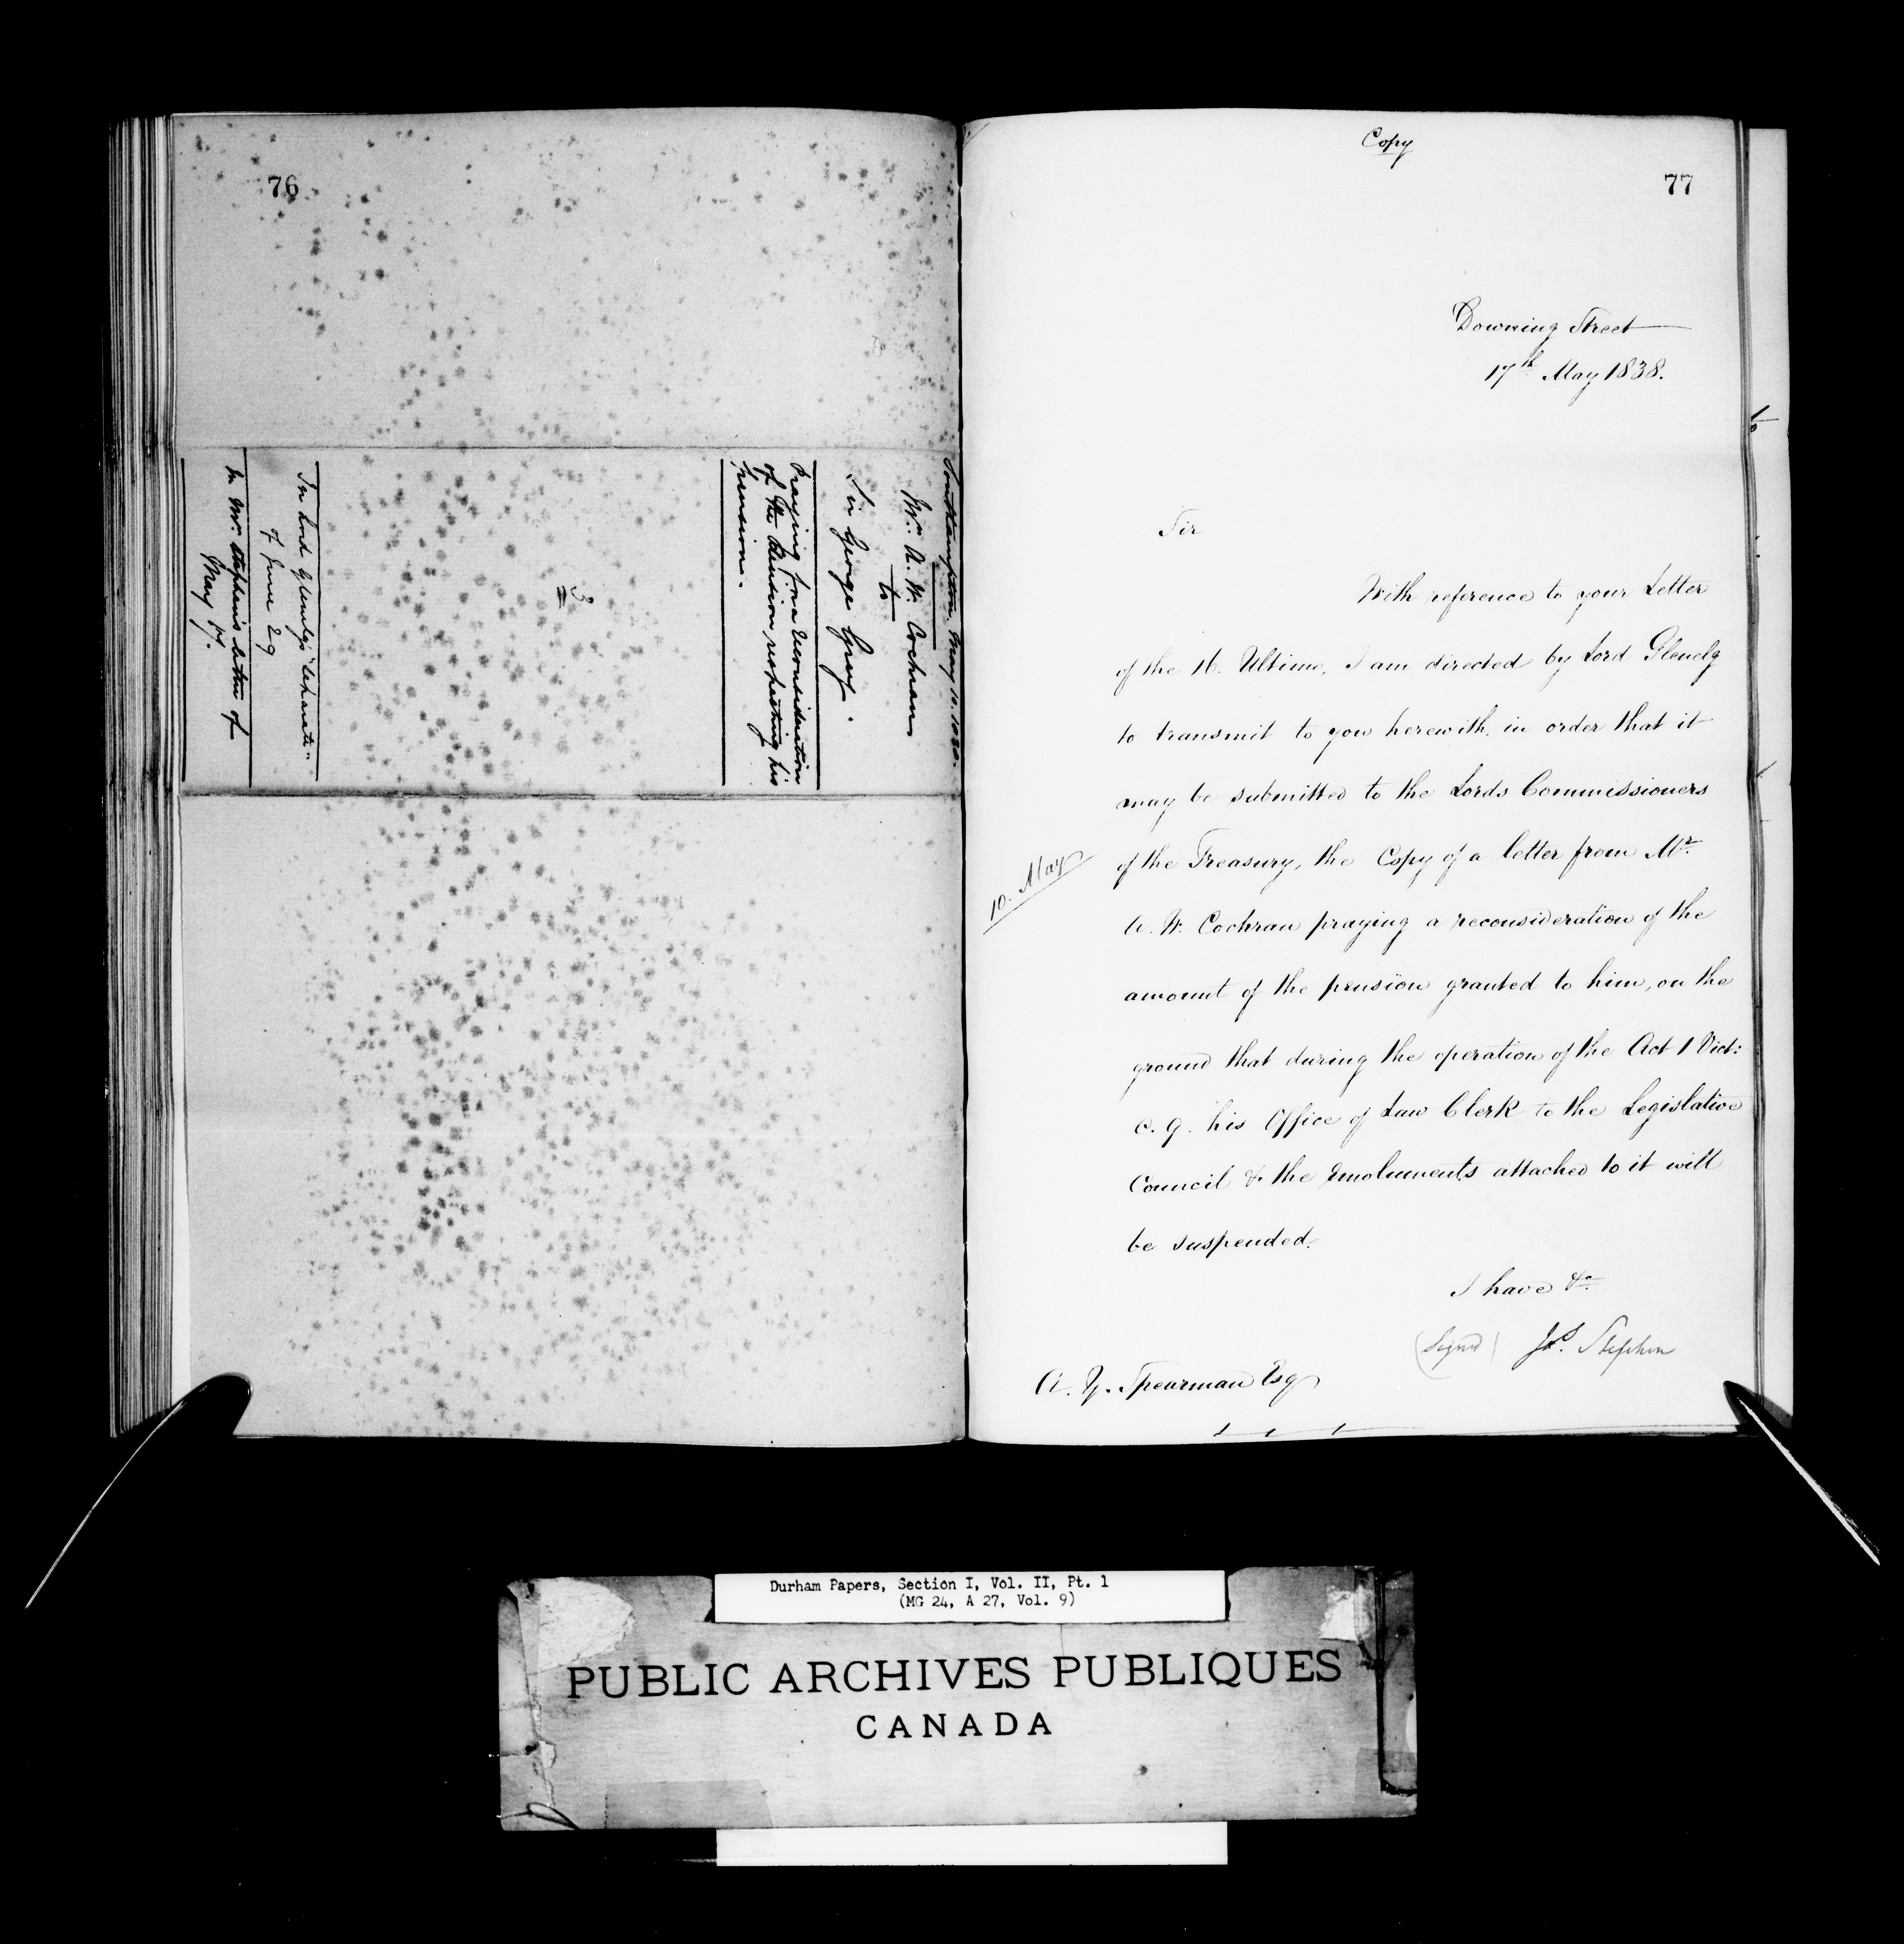 76
Southampton May 10. 1838.
Mr. A. W. Cochran
to
Sir George Grey.
Praying for a reconsideration
of the decision respecting his
pension.
3
In Lord Glenelg's separate
of June 29
In Mr. Stephen's letter of
May 17.
Copy
77
Downing Street
17th May 1838.
Sir
With reference to your Letter
of the 16. Ultimo, I am directed by Lord Glenelg
to transmit to you herewith, in order that it
may be submitted to the Lords Commissioners
of the Treasury, the Copy of a letter from Mr.
10. May
A. W. Cochran praying a reconsideration of the
amount of the pension granted to him, on the
ground that during the operation of the Act 1 Vict:
c. 9. his Office of Law Clerk to the Legislative
Council & the emoluments attached to it will
be suspended.
I have &c.
(Signed) Js. Stephen
A. Y. Spearman Esq
Durham Papers, Section I, Vol. II, Pt. 1
(MG 24, A 27, Vol. 9)
PUBLIC ARCHIVES PUBLIQUES
CANADA